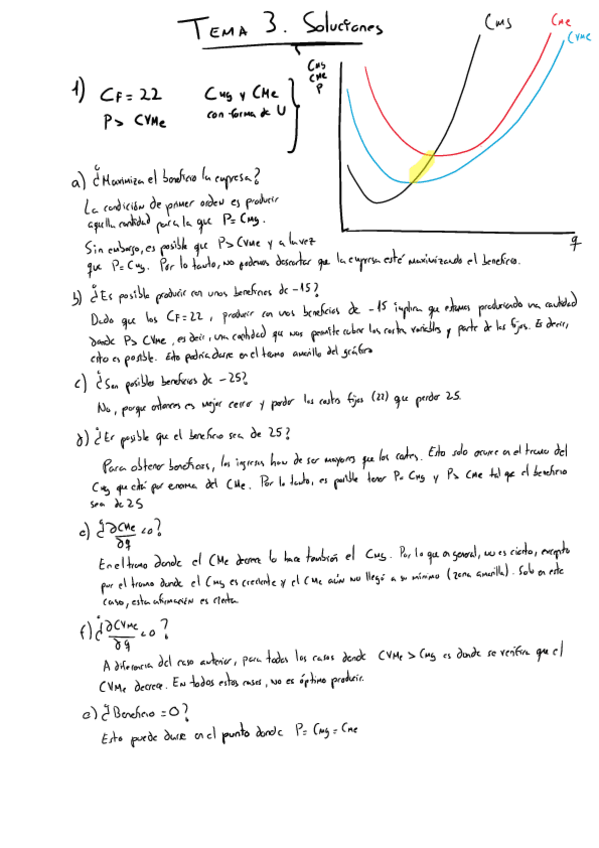 TEMA 3. Soluciones
CMg
CMe
CVMe
CMg
CMe
P
1) CF = 22 CMg y CMe
P > CVMe con forma de U
q
a) ¿Maximiza el beneficio la empresa?
La condición de primer orden es producir
aquella cantidad para la que P = CMg.
Sin embargo, es posible que P > CVMe y a la vez
que P = CMg. Por lo tanto, no podemos descartar que la empresa esté maximizando el beneficio.
b) ¿Es posible producir con unos beneficios de -15?
Dado que los CF = 22, producir con unos beneficios de -15 implica que estamos produciendo una cantidad
donde P > CVMe, es decir, una cantidad que nos permite cubrir los costes variables y parte de los fijos. Es decir,
esto es posible. Esto podría darse en el tramo amarillo del gráfico
c) ¿Son posibles beneficios de -25?
No, porque entonces es mejor cerrar y perder los costes fijos (22) que perder 25.
d) ¿Es posible que el beneficio sea de 25?
Para obtener beneficios, los ingresos han de ser mayores que los costes. Esto solo ocurre en el tramo del
CMg que está por encima del CMe. Por lo tanto, es posible tener P = CMg y P > CMe tal que el beneficio
sea de 25
e) ¿∂CMe/∂q < 0?
En el tramo donde el CMe decrece lo hace también el CMg. Por lo que en general, no es cierto, excepto
por el tramo donde el CMg es creciente y el CMe aún no llegó a su mínimo (zona amarilla). Solo en este
caso, esta afirmación es cierta.
f) ¿∂CVMe/∂q < 0?
A diferencia del caso anterior, para todos los casos donde CVMe > CMg es donde se verifica que el
CVMe decrece. En todos estos casos, no es óptimo producir.
e) ¿Beneficio = 0?
Esto puede darse en el punto donde P = CMg = CMe